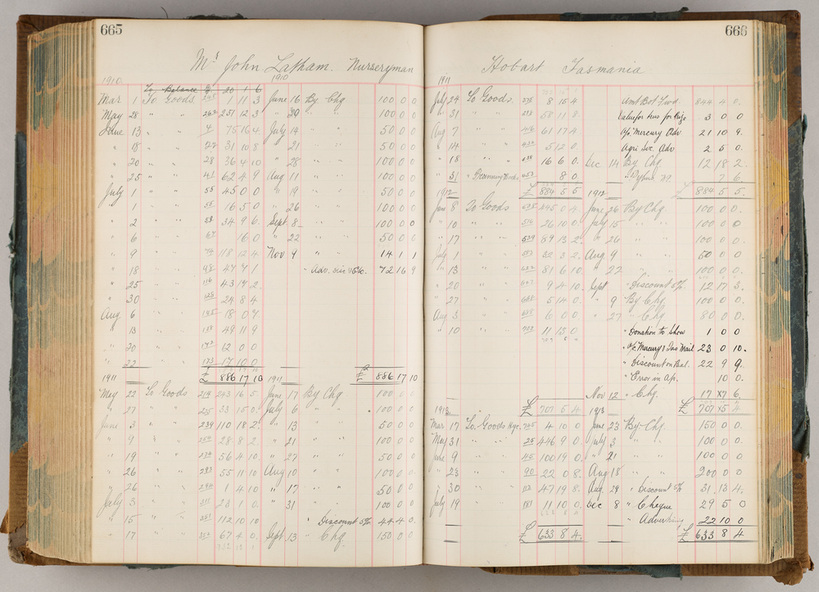 665
Mr John Latham. Nurseryman
1910 1910
To Balance
Mar 1 To Goods 1 11 3 June 16 By Chq 100 0 0
May 28 " " 251 12 3 " 30 " 100 0 0
June 13 " " 75 16 4 July 14 " 50 0 0
" 18 " " 31 10 8 " 21 " 100 0 0
" 20 " " 36 4 10 " 28 " 100 0 0
" 25 " " 62 4 9 Aug 11 " 100 0 0
July 1 " " 45 0 0 " 19 " 50 0 0
" 1 " " 16 5 0 " 26 " 100 0 0
" 2 " " 34 9 6 Sept 8 " 100 0 0
" 6 " " 16 0 " 22 " 50 0 0
" 9 " " 12 4 Nov 9 " 14 1 1
" 18 " " 47 7 1 " Adv. 72 16 9
" 25 " " 43 17 2
" 30 " " 24 8 4
Aug 6 " " 18 0 7
" 13 " " 49 11 9
" 20 " " 12 0 0
" 22 " " 17 10 0
£ 886 17 10 £ 886 17 10
1911 1911
May 22 To Goods 243 16 5 June 17 By Chq 100 0 0
" 27 " " 33 15 0 July 6 " 100 0 0
June 3 " " 110 18 2 " 13 " 50 0 0
" 9 " " 28 8 2 " 21 " 100 0 0
" 19 " " 56 4 10 " 27 " 50 0 0
" 26 " " 55 11 10 Aug 10 " 100 0 0
" 26 " " 1 4 10 " 17 " 50 0 0
July 3 " " 28 1 0 " 31 " 100 0 0
" 15 " " 112 10 10 " Discount 5% 44 4 0
" 17 " " 67 4 0 Sept 13 " Chq. 150 0 0
666
Hobart Tasmania
1911
July 24 To Goods 8 15 4 844 4 0
" 31 " " 58 11 8 3 0 0
Aug 7 " " 61 17 4 Mercury Adv 21 10 9
" 14 " " 5 12 0 Agri Soc. Adv 2 5 0
" 18 " " 16 6 0 Dec 14 By Chq 12 18 2
" 31 " 8 0 7 6
£ 884 5 5 £ 884 5 5
1912 1912
Jun 8 To Goods June 26 By Chq 100 0 0
" 10 " " 26 10 0 July 15 " 100 0 0
" 17 " " 89 13 2 " 26 " 100 0 0
July 1 " " 32 2 2 Aug 9 " 50 0 0
" 13 " " 81 6 10 " 22 " 100 0 0
" 20 " " 9 4 10 Sept " Discount 5% 12 17 3
" 27 " " 5 14 0 " 9 By Chq 100 0 0
Aug 3 " " 9 0 0 " 27 " Chq 80 0 0
" 10 " " 11 13 0 " Donation to Show 1 0 0
Mercury & Tas Mail 23 0 10
" Discount on Bal. 22 9 9
" Error in 10 0
Nov 12 " Chq. 17 17 6
£ 707 5 4 £ 707 15 4
1913 1913
Mar 17 To Goods 4 10 0 June 23 By Chq 150 0 0
May 31 " " 446 9 0 July 3 " 100 0 0
June 9 " " 100 19 0 " 21 " 100 0 0
" 23 " " 22 0 8 Aug 18 " 200 0 0
" 30 " " 47 19 8 Aug 29 " Discount 5% 31 13 4
July 19 " " 11 10 0 Dec 8 " Cheque 29 5 0
" Advertising 22 10 0
£ 633 8 4 £ 633 8 4